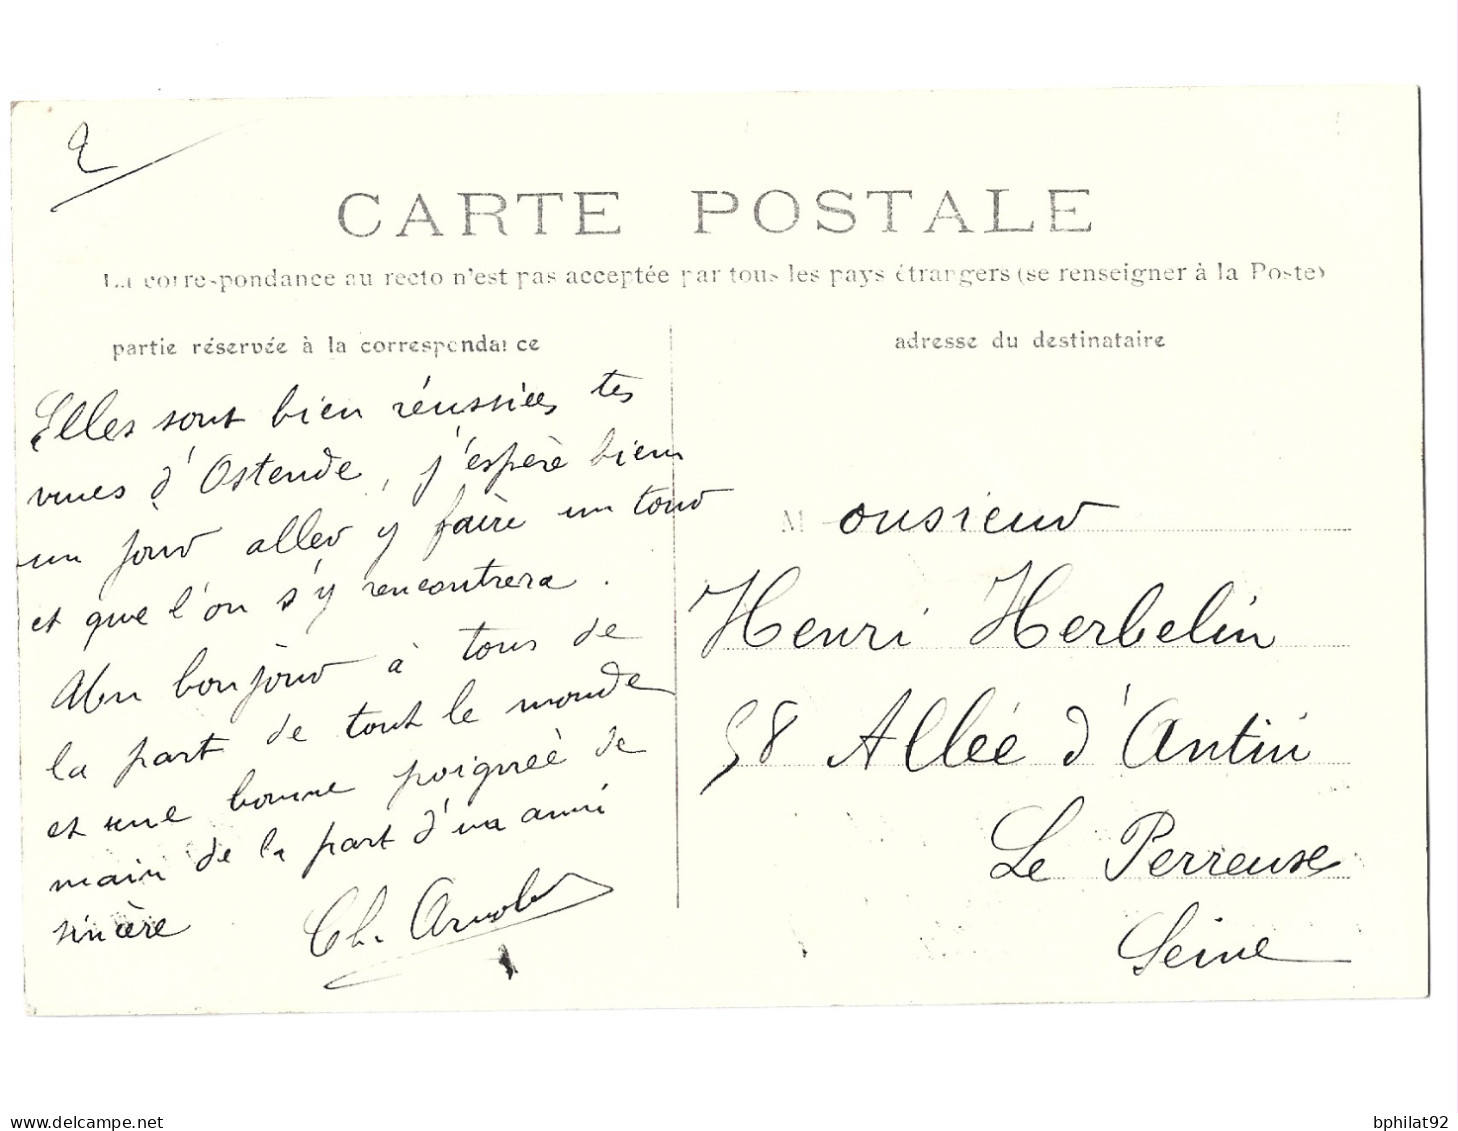 2
CARTE POSTALE
La correspondance au recto n'est pas acceptée par tous les pays étrangers (se renseigner à la Poste)
partie réservée à la correspondance
Elles sont bien réussies tes
vues d'Ostende, j'espère bien
un jour aller y faire un tour
et que l'on s'y rencontrera.
bonjour à tous de
la part de tout le monde
et une bonne poignée de
main de la part d'un ami
sincère
Ch. Arnold
adresse du destinataire
Monsieur
Henri Herbelin
58 Allée d'Antin
Le Perreuse
Seine
delcampe.net
bphilat92